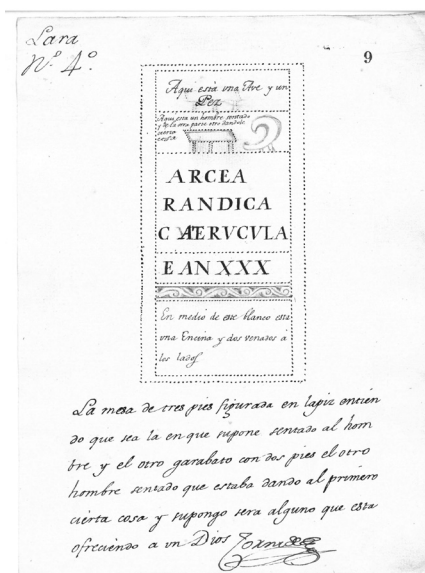 Lara
N.º 4.º
9
Aqui está una Ave y un
Pez
Aqui esta un hombre sentado
y de la otra parte otro dandole
cierta
cossa
ARCEA
RANDICA
C ATERVCVLA
E AN XXX
En medio de este blanco esta
una Encina y dos venados á
los lados
La mesa de tres pies figurada en lapiz entien
do que sea la en que supone sentado al hom
bre y el otro garabato con dos pies el otro
hombre sentado que estaba dando al primero
cierta cosa y supongo sera alguno que esta
ofreciendo a un Dios